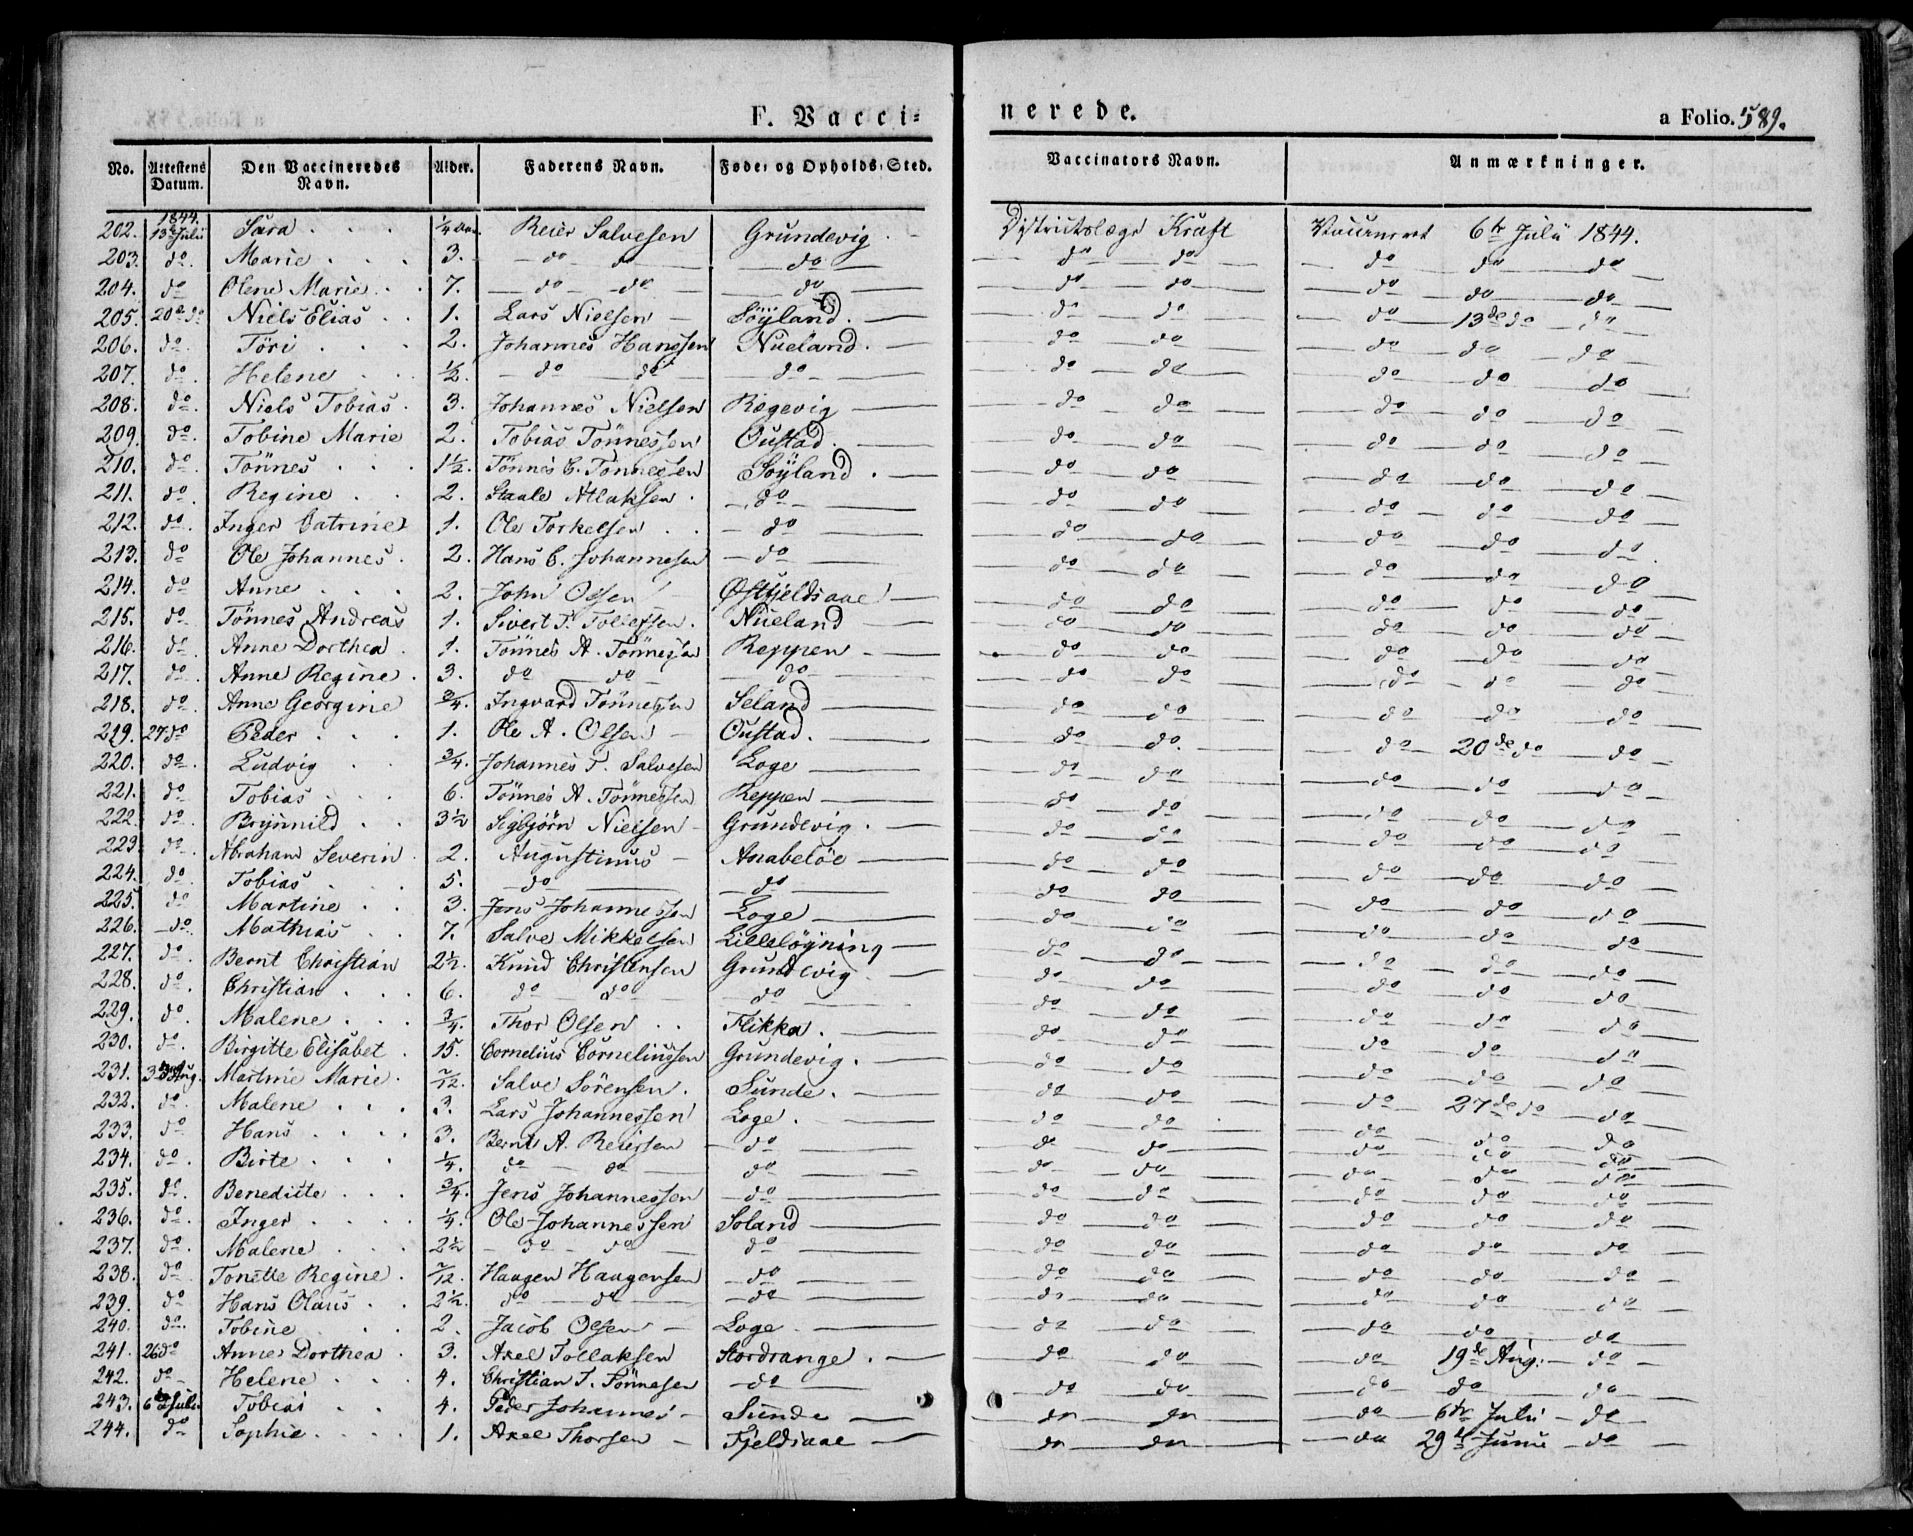 F. Vacci-
nerede.
a Folio. 589.
No. Attestens Datum. Den Vaccineredes Navn. Alder. Faderens Navn. Føde- og Opholds-Sted. Vaccinators Navn. Anmærkninger.
1844.
202. 13de Juli Sara . . . 1/4 Reier Salvesen Grundevig Districtslæge Kraft Vaccineret 6te Juli 1844.
203. do. Marie . . . 3. do do do do do do do do
204. do Olene Marie . . 7. do do do do do do do do
205. 20de do Niels Elias . . 1. Lars Nielsen Söyland. do do do 13de do do
206. do. Töri . . . 2. Johannes Hanssen Nueland. do do do do do
207. do. Helene . . 1/2. do do do do do do do do
208. do. Niels Tobias . 3. Johannes Nielsen Rægevig do do do do do
209. do. Tobine Marie 2. Tobias Tönnessen Oustad. do do do do do
210. do. Tönnes . . . 1 1/2. Tönnes C. Tönnessen Söyland. do do do do do
211. do. Regine . . 2. Staale Atlaksen . do do do do do do
212. do. Inger Catrine 1. Ole Torkelsen . . do do do do do do
213. do Ole Johannes . 2. Hans C. Johannesen do do do do do do
214. do Anne . . . 2. John Olsen Østfjeldsaae do do do do do
215. do. Tönnes Andreas 1. Sivert T. Tollefsen . Nueland do do do do do
216. do Anne Dorthea . 1. Tönnes A. Tönnessen Reppen do do do do do
217. do. Anne Regine . 3. do do do do do do do do
218. do. Anne Georgine 3/4. Ingvard Tönnessen Seland do do do do do
219. 27 do Peder . . . 1. Ole A. Olsen Oustad. do do. do 20de do do
220. do. Ludvig . . 3/4. Johannes T. Salvesen Loge do do do do do
221. do Tobias . . . 6. Tönnes A. Tönnessen Reppen do do do do do
222. do. Brynnild . . 3 1/2 Sigbjörn Nielsen Grundevig . do do do do do
223. do. Abraham Severin . 2. Augustinus Anabelöe do do do do do
224. do. Tobias . . . 5. do do do do do do do
225. do Martine . . 3. Jens Johannessen Loge do do do do do
226. do. Mathias . . 7. Salve Mikkelsen Lillelögning do do do do do
227. do. Bernt Christian 2 1/2. Knud Christensen Grundevig do do do do do
228. do. Christian . . . 6. do do do do do do do do
229. do. Malene . . . 3/4. Thor Olsen . . Flikka. do do do do do
230. do. Birgitte Elisabet . 15. Cornelius Corneliussen Grundevig. do do do do do
231. 3 Aug. Martine Marie . 7/12. Salve Sörensen . Sunde. do do do do do
232. do. Malene . . . 3. Lars Johannessen Loge . do do do 27de do do
233. do Hans . . . . 3. Bernt A. Reiersen do do do do do do
234. do. Birte . . . 1/4. do do do do do do do do
235. do. Benedicte . . 3/4. Jens Johannessen do do do do do do
236. do. Inger . . . . 1/4. Ole Johannessen Soland do do do do do
237. do. Malene . . . 2 1/2 do do do do do do do do
238. do Tonette Regine . 7/12. Haagen Haagensen do do do do do do
239. do Hans Olaus . . 2 1/2. do do do do do do do do
240. do. Tobine . . . 2. Jacob Olsen Loge do do do do do
241. 26 do Anne Dorthea . 3. Axel Tollaksen Stordrange. do do do 19de Aug: do
242. do Helene . . . 4. Christian T. Tönnesen do do do do do do
243. 6te Juli Tobias . . 4. Peder Johannes Sunde do do do 6te Juli do
244. do Sophie . . . . 1. Axel Thorsen Fjeldsaae do do do 29de Juni do